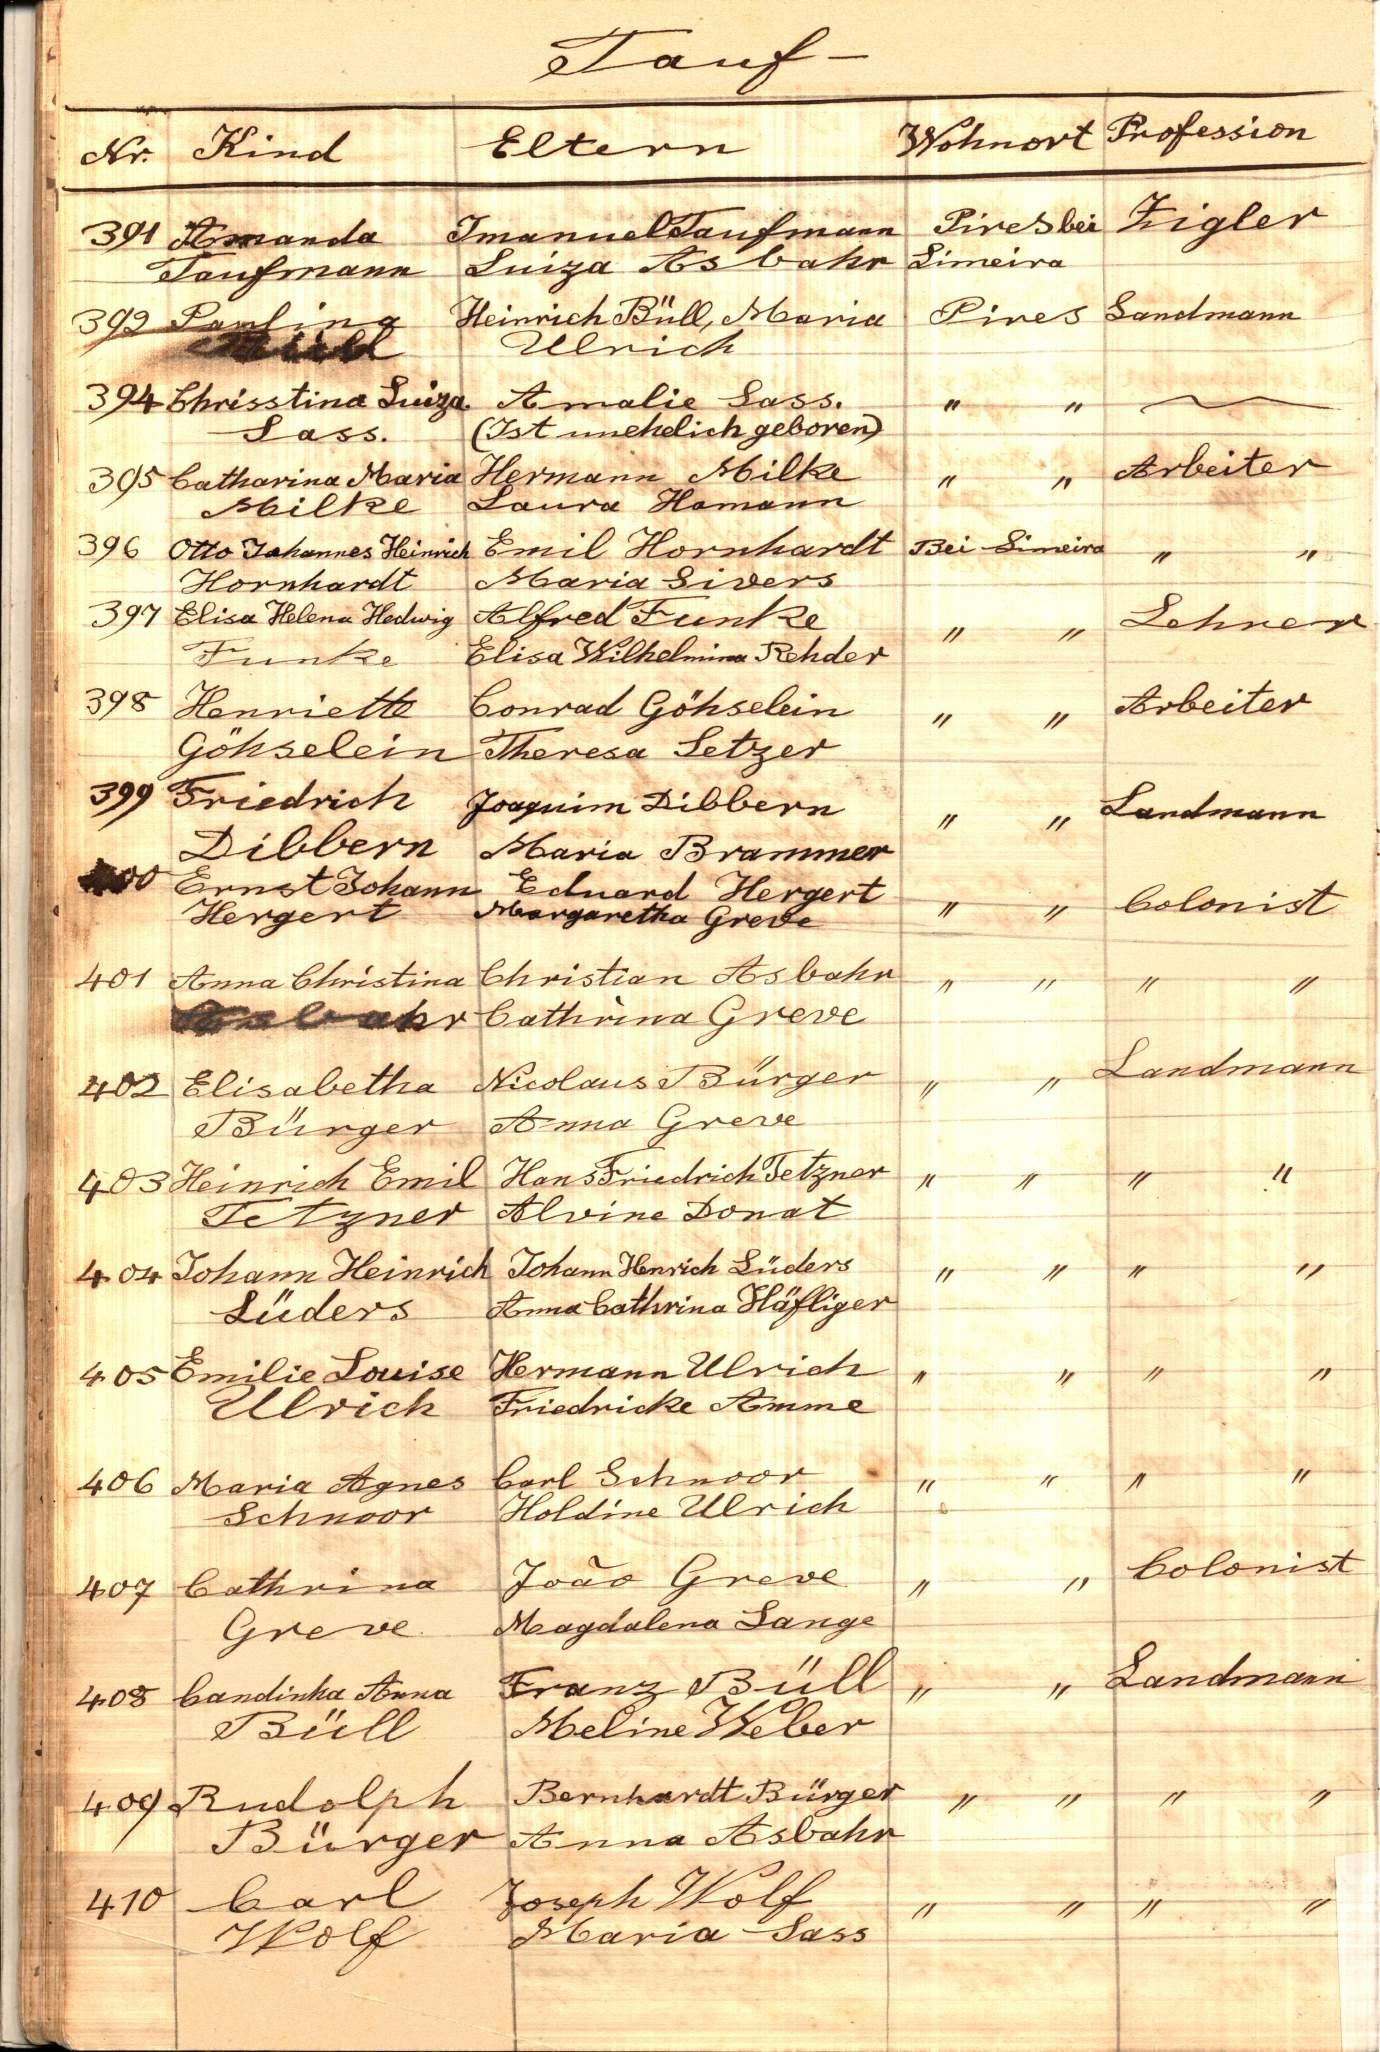 Tauf-
Nr. Kind Eltern Wohnort Profession
391 Amanda Imanuel Taufmann Pires bei Zigler
Taufmann Luiza Asbahr Limeira
392 Paulina Heinrich Büll, Maria Pires Landmann
Büll Ulrich
394 Chrisstina Luiza Amalie Sass. " "
Sass. (Ist unehelich geboren)
395 Catharina Maria Hermann Milke " " Arbeiter
Milke Laura Hamann
396 Otto Johannes Heinrich Emil Hornhardt Bei Limeira " "
Hornhardt Maria Sivers
397 Elisa Helena Hedwig Alfred Funke " " Lehrer
Funke Elisa Wilhelmina Rehder
398 Henriette Conrad Göhselein " " Arbeiter
Göhselein Theresa Setzer
399 Friedrich Joaquim Dibbern " " Landmann
Dibbern Maria Brammer
400 Ernst Johann Eduard Hergert " " Colonist
Hergert Margaretha Greve
401 Anna Christina Christian Asbahr " " " "
Asbahr Cathrina Greve
402 Elisabetha Nicolaus Bürger " " Landmann
Bürger Anna Greve
403 Heinrich Emil Hans Friedrich Tetzner " " " "
Tetzner Alvine Donat
404 Johann Heinrich Johann Henrich Lüders " " " "
Lüders Anna Cathrina Häfliger
405 Emilie Louise Hermann Ulrich " " " "
Ulrich Friedricke Amme
406 Maria Agnes Carl Schnoor " " " "
Schnoor Holdine Ulrich
407 Cathrina João Greve " " Colonist
Greve Magdalena Lange
408 Candinha Anna Franz Büll " " Landmann
Büll Meline Weber
409 Rudolph Bernhardt Bürger " " " "
Bürger Anna Asbahr
410 Carl Joseph Wolf " " " "
Wolf Maria Sass